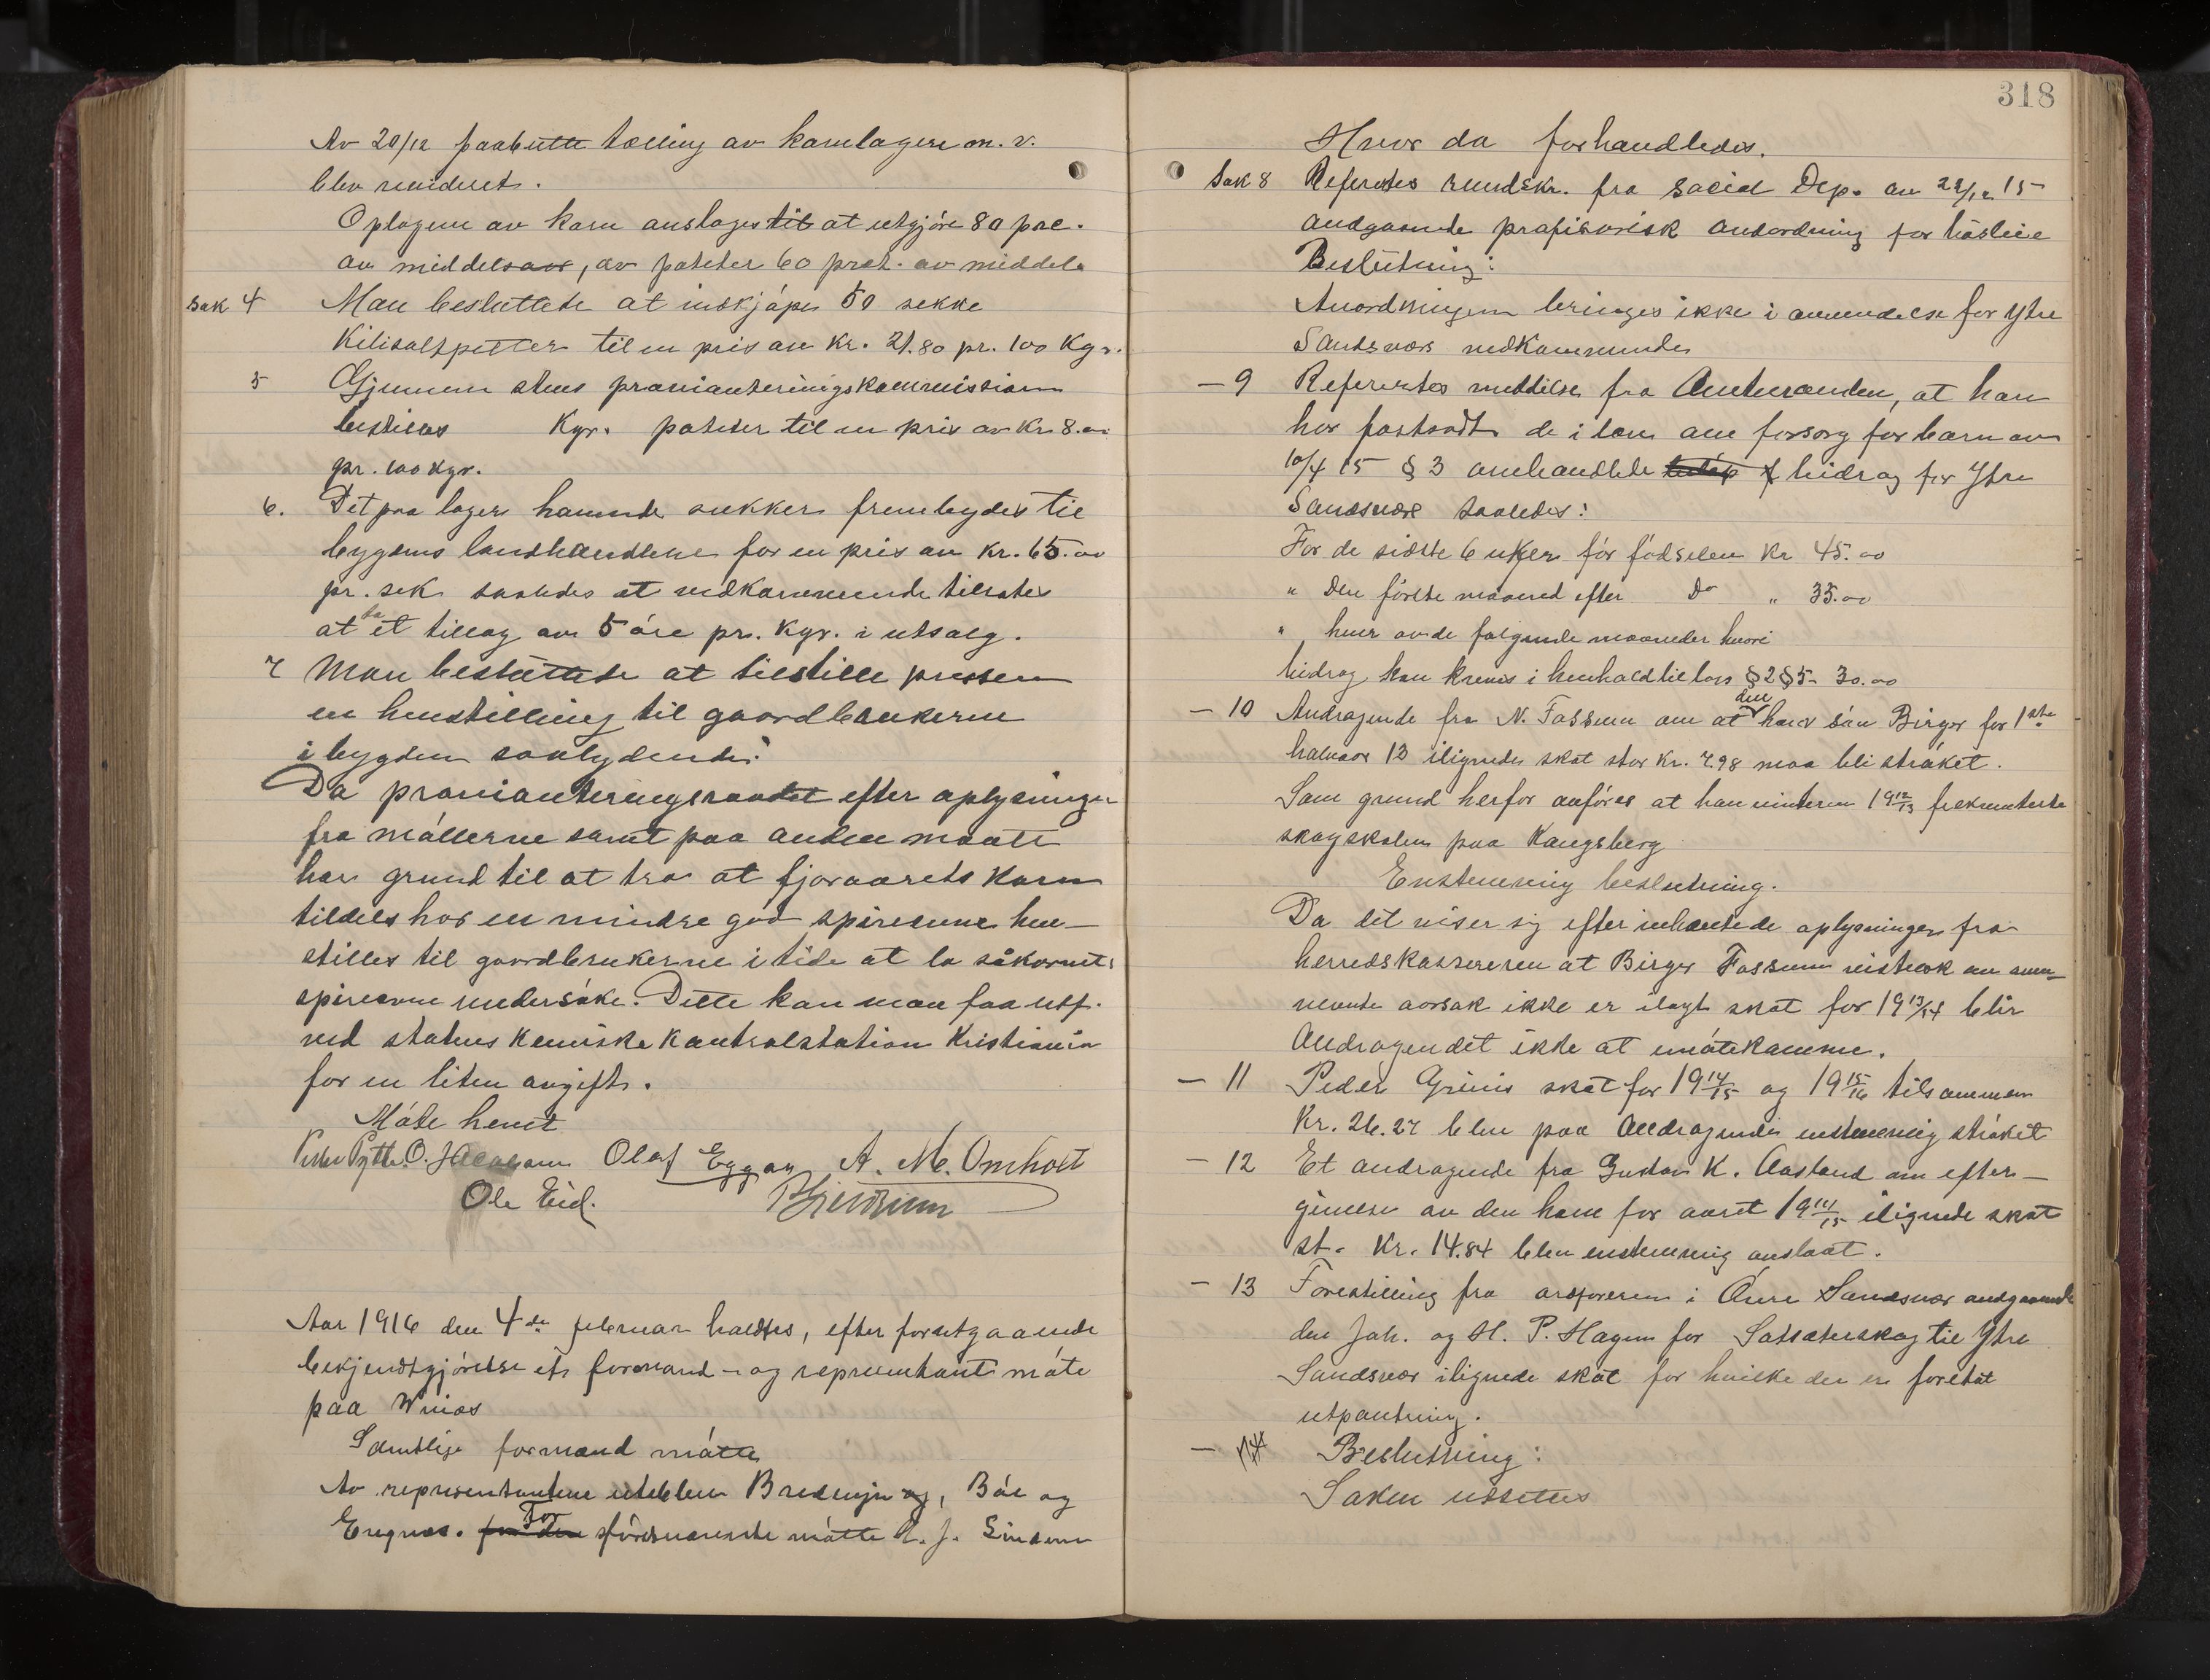 Av 20/12 paabudte tælling av kornlagere m. v.
blev revideret.
Oplagene av korn ansloges til at utgjøre 80 pct.
av middelsaar, av poteter 60 prct. av middels
Sak 4 Man besluttede at indkjøpe 50 sekke
Kilisaltpetter til en pris av Kr. 21.80 pr. 100 Kgr.
5 Gjennem stens provianteringskommission
bestilles Kgr. poteter til en pris av Kr 8.00
pr. 100 kgr.
6. Det paa lager havende sukker frembydes til
bygdens landhandlere for en pris av Kr. 65.00
pr. sek saaledes at vedkommende tillates
at ta et tillæg av 5 øre pr. Kgr. i utsalg.
7 Man besluttede at tilstille pressen
en henstilling til gaardbrukerne
i bygden saalydende:
Da provianteringsraadet efter oplysninger
fra møllerne samt paa anden maate
har grund til at tro at fjoraarets korn
tildels har en mindre god spireevne hen-
stilles til gaardbrukerne i tide at la såkornets
spireevne undersøke. Dette kan man faa utf.
ved statens kemiske kontrolstation Kristiania
for en liten avgift.
Møte hevet
Peder Pytte. O. Jacobsen Olaf Eggar A. M. Omholt
Ole Eid.
Aar 1916 den 4de februar holdtes, efter forutgaaende
bekjendtgjørelse et formand- og representant møte
paa Winæs
Samtlige formænd møtte
Av representantene uteblev Bredenje og, Bøe og
Engnæs. for den For førstnævnte møtte A. J. Linden
318
Hvor da forhandledes.
Sak 8 Refertes rundskr. fra Social Dep. av 22/12 15
andgaaende profisorisk anordning for håsleie
Beslutning:
Anordningen bringes ikke i anvendelse for Ytre
Sandsvær vedkommende
— 9 Refertes meddelse fra Amtmanden, at han
har fastsadt de i lov om forsorg for barn av
10/4 15 § 3 omhandlede beløp f bidrag for Ytre
Sandsvær saaledes:
For de sidste 6 uker før fødselen Kr 45.00
" Den første maaned efter Do " 35.00
" hver av de følgende maaneder hvori
bidrag kan kreves i henhold til lovs § 2 § 5 - 30.00
— 10 Andragende fra N. Fossum om at den hans søn Birger for 1ste
halvaar 13 ilignede skat stor Kr. 7.98 maa bli strøket.
Som grund herfor anføres at han vinteren 1912/13 frekventerte
skogskolen paa Kongsberg
Enstemmig beslutning.
Da det viser sig efter indhentede oplysninger fra
herredskassereren at Birger Fossum av
nævnte aarsak ikke er ilagt skat for 1913/14 blir
Andragendet ikke at imøtekomme.
— 11 Peder Grinis skat for 1914/15 og 1915/16 tilsammen
Kr. 26.27 blev paa Andragende enstemmig strøket
— 12 Et andragende fra Gustav K. Aasland om efter-
givelse av den ham for aaret 1914/15 ilignede skat
st. Kr. 14.84 blev enstemmig avslaat.
— 13 Forestilling fra ordføreren i Øvre Sandsvær andgaaende
den Joh. og H. P. Hagen for Satsæterskog til Ytre
Sandsvær ilignede skat for hvilke der er foretat
utpantning.
— 14 Beslutning:
Saken utsettes